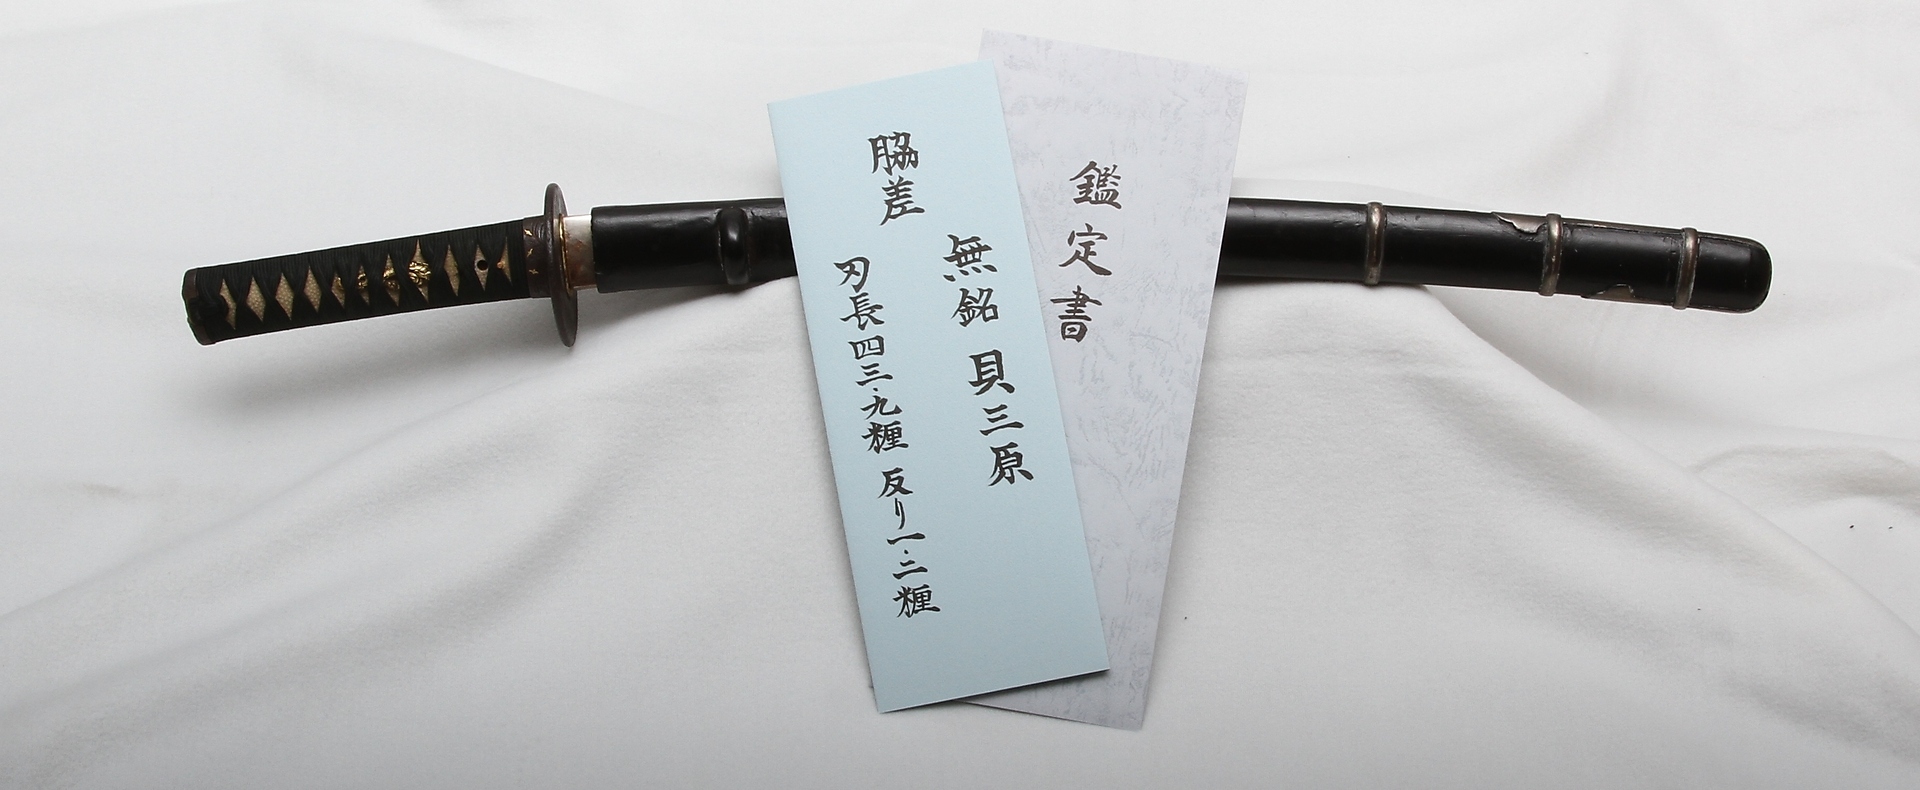 鑑定書
脇差
無銘 貝三原
刃長四三・九糎 反り一・二糎